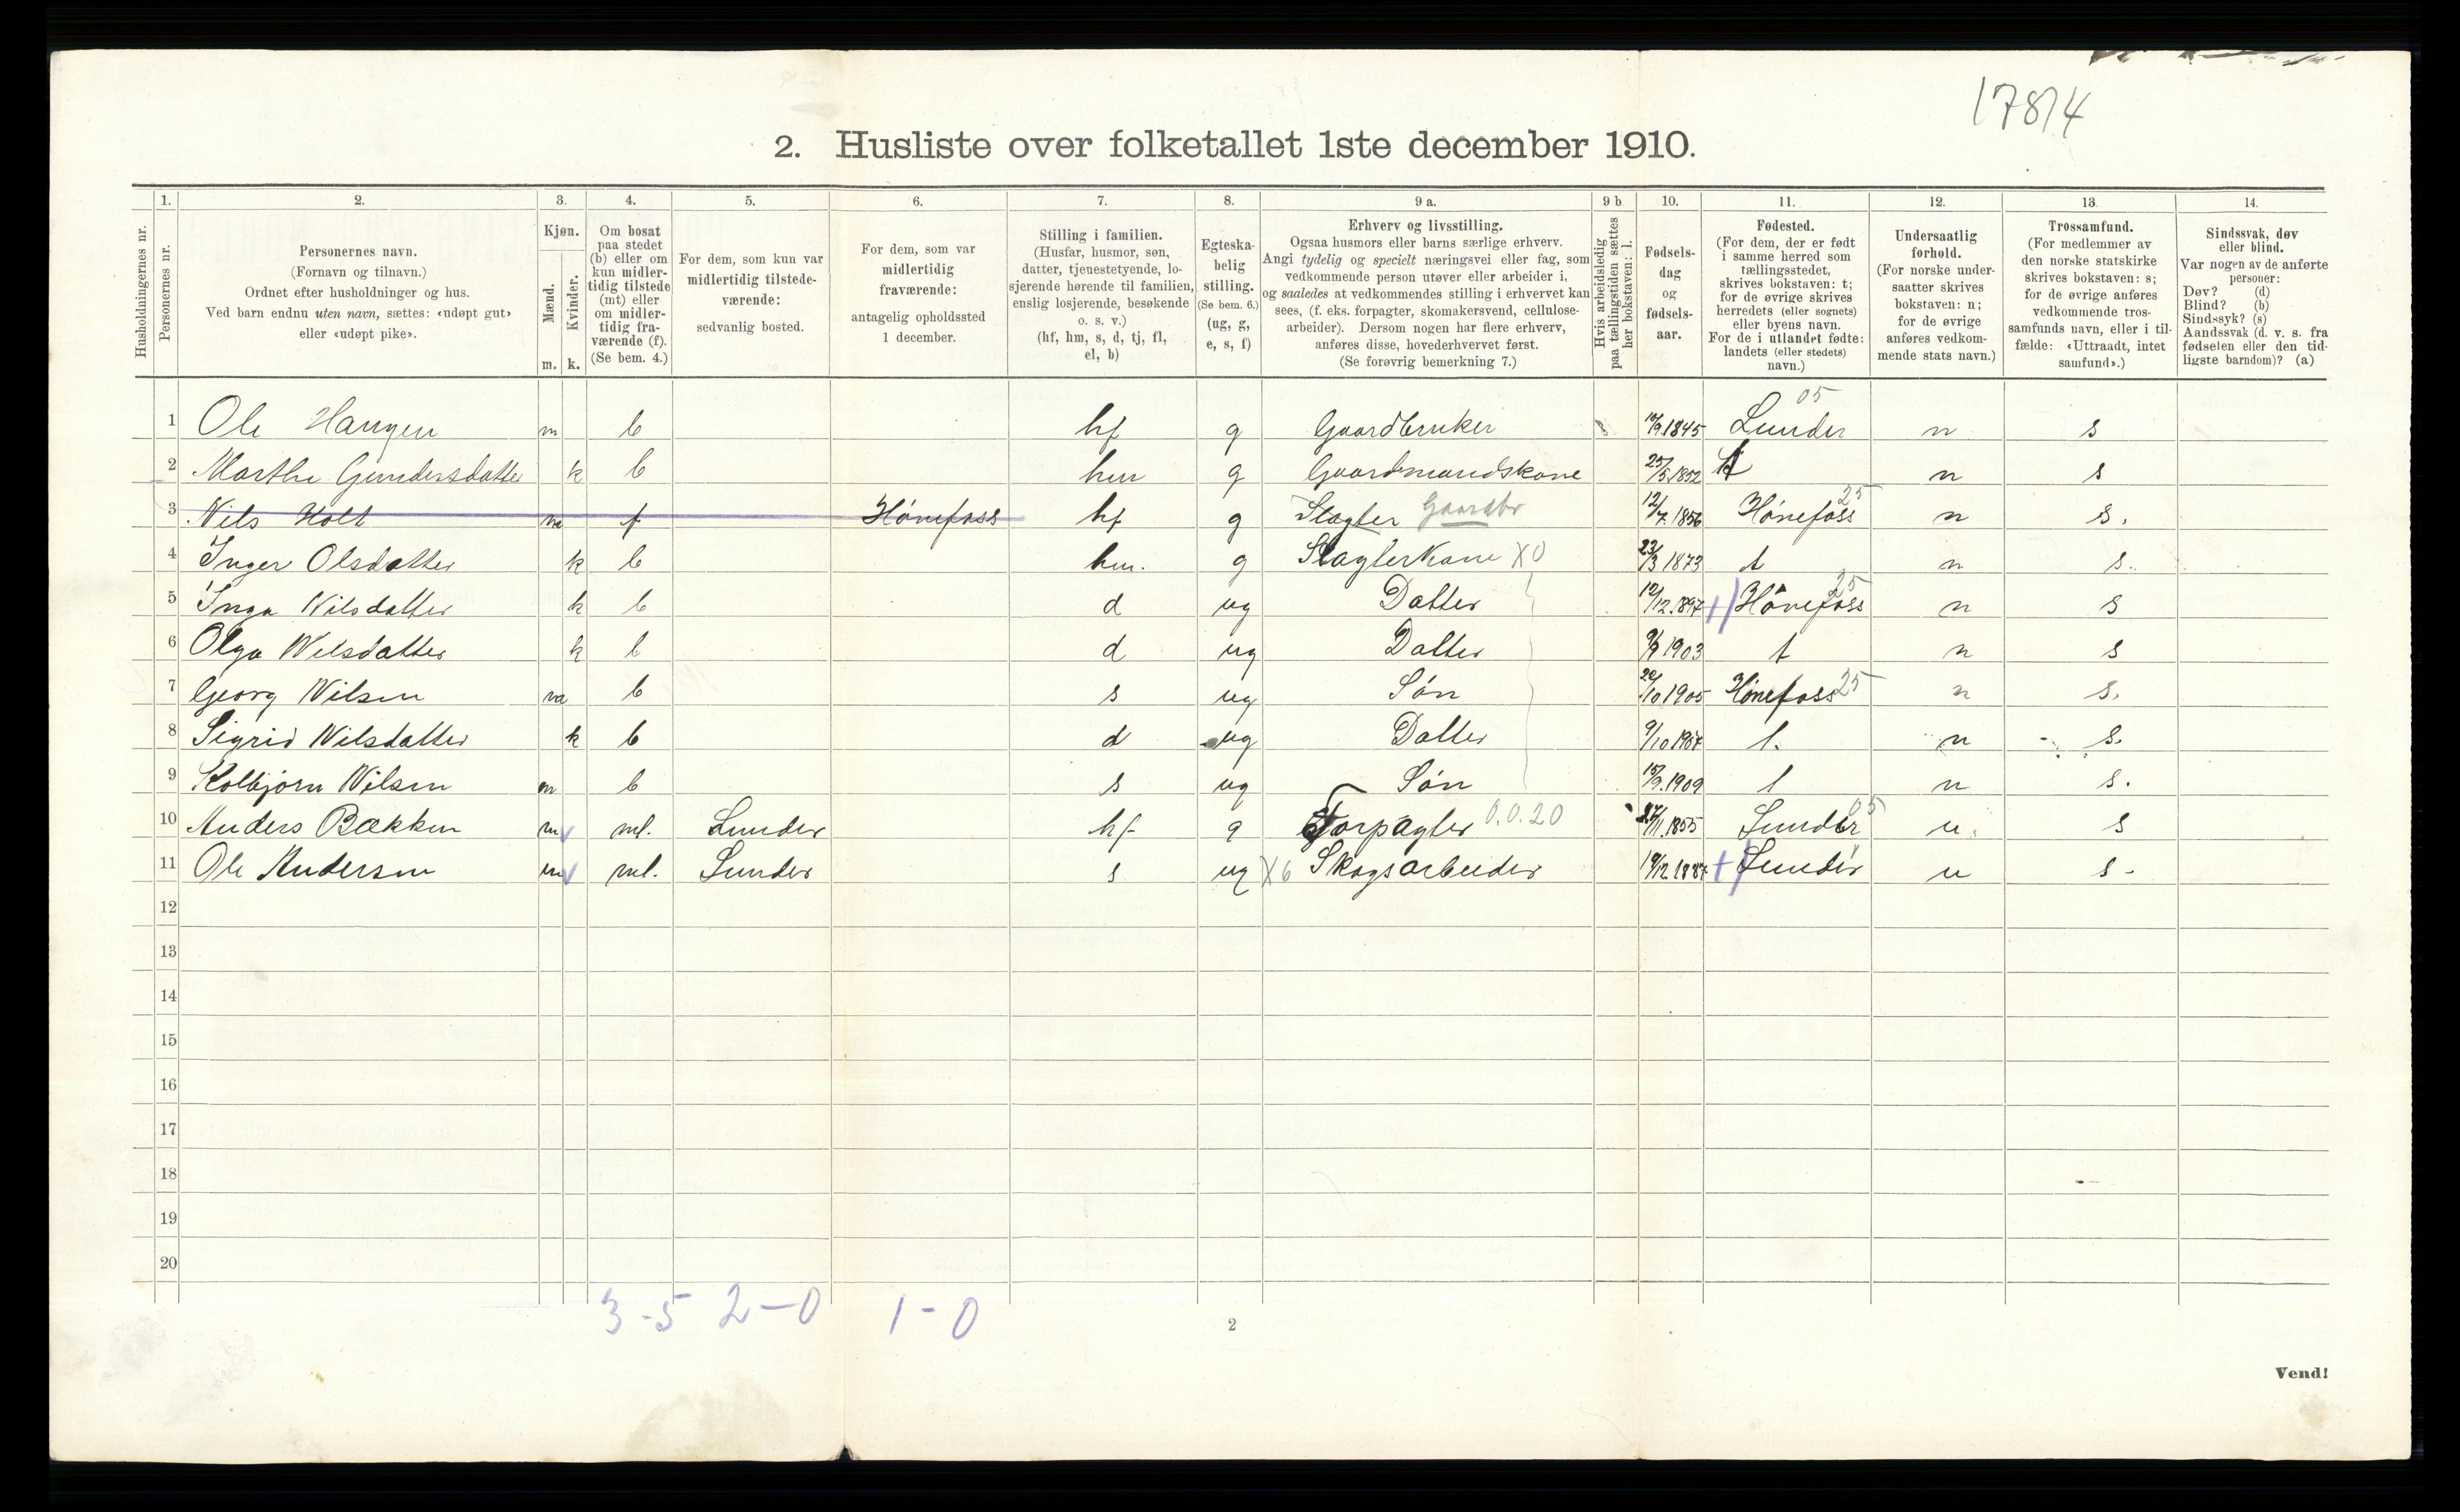 17814
2. Husliste over folketallet 1ste december 1910.
Husholdningernes nr.
1. Personernes nr.
2. Personernes navn.
(Fornavn og tilnavn.)
Ordnet efter husholdninger og hus.
Ved barn endnu uten navn, sættes: «udøpt gut»
eller «udøpt pike».
3. Kjøn.
Mænd. Kvinder.
m. k.
4. Om bosat
paa stedet
(b) eller om
kun midler-
tidig tilstede
(mt) eller
om midler-
tidig fra-
værende (f).
(Se bem. 4.)
5. For dem, som kun var
midlertidig tilstede-
værende:
sedvanlig bosted.
6. For dem, som var
midlertidig
fraværende:
antagelig opholdssted
1 december.
7. Stilling i familien.
(Husfar, husmor, søn,
datter, tjenestetyende, lo-
sjerende hørende til familien,
enslig losjerende, besøkende
o. s. v.)
(hf, hm, s, d, tj, fl,
el, b)
8. Egteska-
belig
stilling.
(Se bem. 6.)
(ug, g,
e, s, f)
9 a. Erhverv og livsstilling.
Ogsaa husmors eller barns særlige erhverv.
Angi tydelig og specielt næringsvei eller fag, som
vedkommende person utøver eller arbeider i,
og saaledes at vedkommendes stilling i erhvervet kan
sees, (f. eks. forpagter, skomakersvend, cellulose-
arbeider). Dersom nogen har flere erhverv,
anføres disse, hovederhvervet først.
(Se forøvrig bemerkning 7.)
9 b Hvis arbeidsledig
paa tællingstiden sættes
her bokstaven: l.
10. Fødsels-
dag
og
fødsels-
aar.
11. Fødested.
(For dem, der er født
i samme herred som
tællingsstedet,
skrives bokstaven: t;
for de øvrige skrives
herredets (eller sognets)
eller byens navn.
For de i utlandet fødte:
landets (eller stedets)
navn.)
12. Undersaatlig
forhold.
(For norske under-
saatter skrives
bokstaven: n;
for de øvrige
anføres vedkom-
mende stats navn.)
13. Trossamfund.
(For medlemmer av
den norske statskirke
skrives bokstaven: s;
for de øvrige anføres
vedkommende tros-
samfunds navn, eller i til-
fælde: «Uttraadt, intet
samfund».)
14. Sindssvak, døv
eller blind.
Var nogen av de anførte
personer:
Døv? (d)
Blind? (b)
Sindssyk? (s)
Aandssvak (d. v. s. fra
fødselen eller den tid-
ligste barndom)? (a)
1 Ole Haugen m b hf g Gaardbruker 1845 Lunder 05 n s
2 Marthe Gundersdatter k b hm g Gaardmandskone 25/5 1852 t n s
3 Nils Holt m f Hønefoss hf g Slagter Gaardbr 12/7 1856 Hønefoss 25 n s.
4 Inger Olsdatter k b hm. g Slagterkone X0 23/3 1873 t n s.
5 Inga Nilsdatter k b d ug Datter 12/12 1897 Hønefoss 25 n s
6 Olga Nilsdatter k b d ug Datter 1903 t n s
7 Georg Nilsen m b s ug Søn 10 1905 Hønefoss 25 n s.
8 Sigrid Nilsdatter k b d ug Datter 9/10 1907 t. n s.
9 Kolbjørn Nilsen m b s ug Søn 15/9 1909 t n s.
10 Anders Bækken m mt. Lunder hf g Forpagter 0.0.20 27/11 1855 Lunder 05 n. s
11 Ole Andersen m mt. Lunder s ug X6 Skogsarbeider 19/12 1887 Lunder n s -
12
13
14
15
16
17
18
19
20
3-5 2-0 1-0
2
Vend!